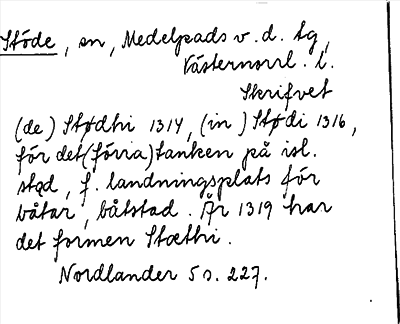 Stöde, sn, Medelpads v. d. tg,
Västernorrl. l.
Skrifvet
(de) Stødhi 1314, (in) Stødi 1316,
för det (förra) tanken på isl.
stǫd, f. landningsplats för
båtar, båtstad. År 1319 har
det formen Stæthi.
Nordlander s. 227.